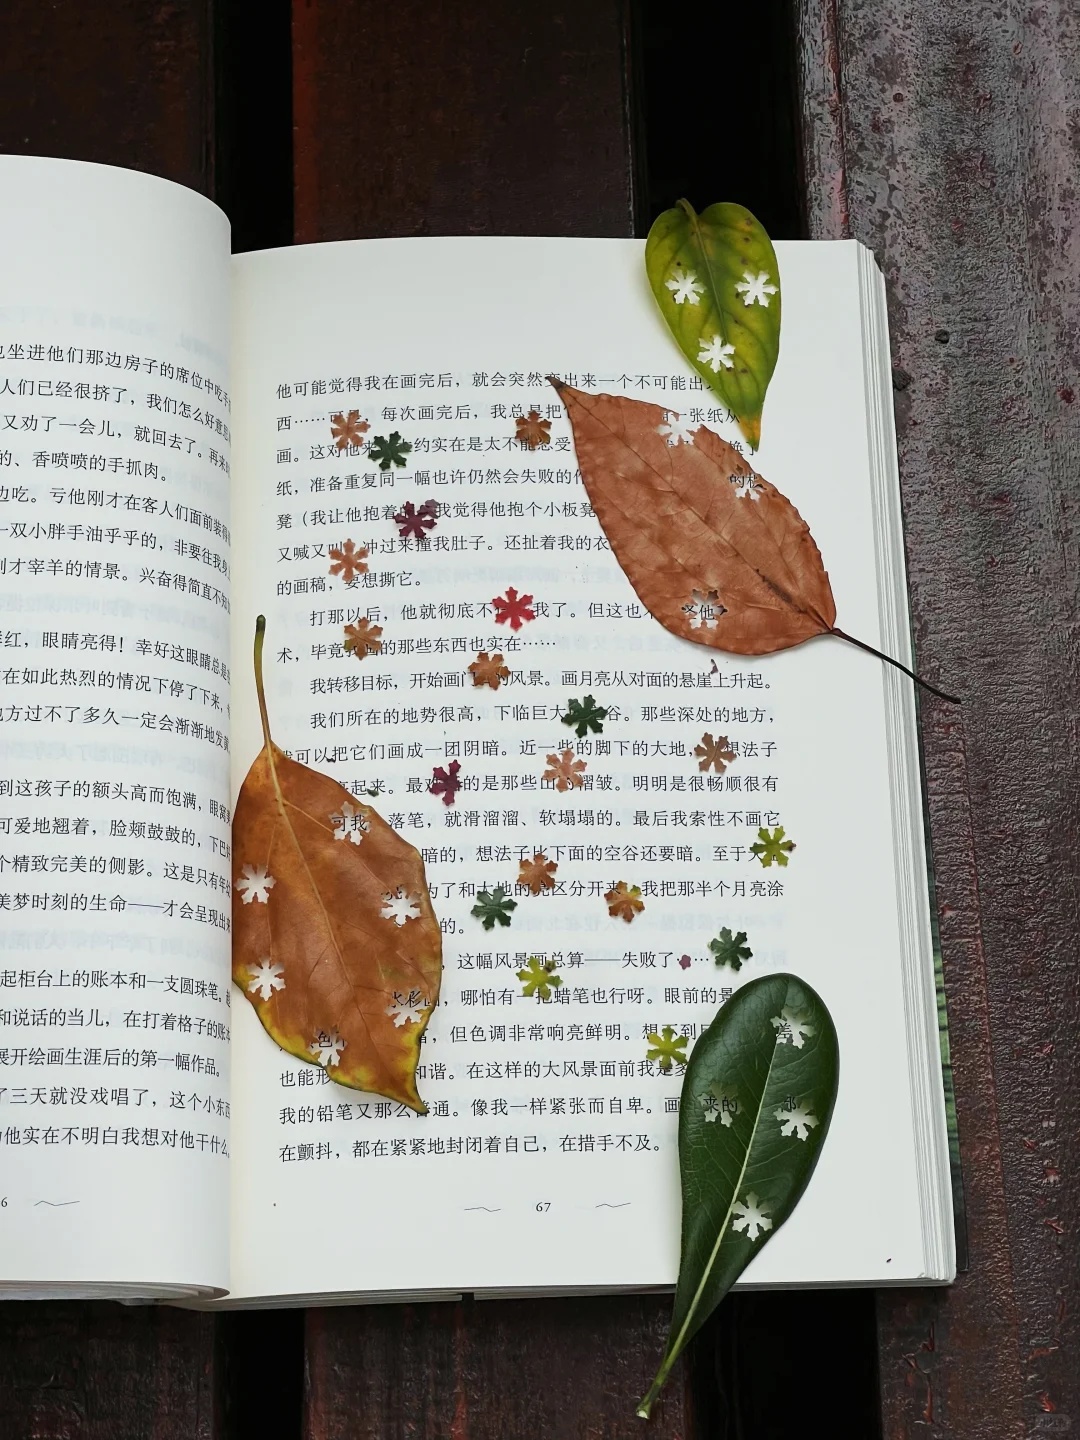 也坐进他们那边房子的席位中吃手
人们已经很挤了，我们怎么好意思
又劝了一会儿，就回去了。再来时
的、香喷喷的手抓肉。
边吃。亏他刚才在客人们面前装得
一双小胖手油乎乎的，非要往我身
刚才宰羊的情景。兴奋得简直不知
红，眼睛亮得！幸好这眼睛总是
在如此热烈的情况下停了下来，
地方过不了多久一定会渐渐地发
到这孩子的额头高而饱满，眼窝
可爱地翘着，脸颊鼓鼓的，下巴
个精致完美的侧影。这是只有年
美梦时刻的生命——才会呈现出来
起柜台上的账本和一支圆珠笔，
和说话的当儿，在打着格子的账本
展开绘画生涯后的第一幅作品。
了三天就没戏唱了，这个小东西
他实在不明白我想对他干什么。
6
他可能觉得我在画完后，就会突然变出来一个不可能出
西……可是，每次画完后，我总是把它 一张纸从
画。这对他来 约实在是太不能忍受 换了
纸，准备重复同一幅也许仍然会失败的作
凳（我让他抱着的 我觉得他抱个小板凳
又喊又叫 冲过来撞我肚子。还扯着我的衣
的画稿，要想撕它。
打那以后，他就彻底不 我了。但这也不 怪他
术，毕竟我画的那些东西也实在……
我转移目标，开始画门 的风景。画月亮从对面的悬崖上升起。
我们所在的地势很高，下临巨大 谷。那些深处的地方，
我可以把它们画成一团阴暗。近一些的脚下的大地， 想法子
亮起来。最难 的是那些山 褶皱。明明是很畅顺很有
可我 落笔，就滑溜溜、软塌塌的。最后我索性不画它
暗的，想法子比下面的空谷还要暗。至于天空
亮 为了和大地的亮区分开来 我把那半个月亮涂
的。
，这幅风景画总算——失败了……
水彩 ，哪怕有一把蜡笔也行呀。眼前的景
色 暗，但色调非常响亮鲜明。想不到 差
也能形 和谐。在这样的大风景面前我是多 那
我的铅笔又那么普通。像我一样紧张而自卑。画 来的 都
在颤抖，都在紧紧地封闭着自己，在措手不及。
67